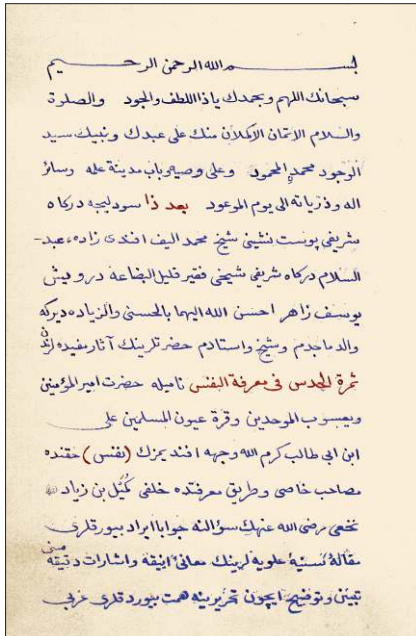 بسم الله الرحمن الرحيم
سبحانك اللهم وبحمدك ياذا اللطف والجود والصلوة
والسلام الاتمان الاكملان منك على عبدك ونبيك سيد
الوجود محمد المحمود وعلى وصيه وباب مدينة علمه وسائر
اله وذرياته الى يوم الموعود بعد ذا سودليجه دركاه
شريفى پوست نشينى شيخ محمد اليف افندى زاده عبد
السلام دركاه شريفى شيخى فقير قليل البضاعه درويش
يوسف زاهر احسن الله اليهما بالحسنى والزياده ديركه
والد ماجدم وشيخ واستادم حضرتلرينك آثار مفيده لرندن
ثمرة الحدس فى معرفة النفس ناميله حضرت امير المؤمنين
ويعسوب الموحدين وقرة عيون المسلمين على
ابن ابى طالب كرم الله وجهه افنديمزك (نفس) حقنده
مصاحب خاصى وطريق معرفتده خلفى كميل بن زياد
نخعى رضى الله عنهك سؤالنه جوابا ايراد بيورقلرى
مقالهٔ نسيهٔ علويه لرينك معانئ انيقه واشارات دقيقه سنى
تبيين وتوضيح ايچون تحريرينه همت بيوردقلرى عربى